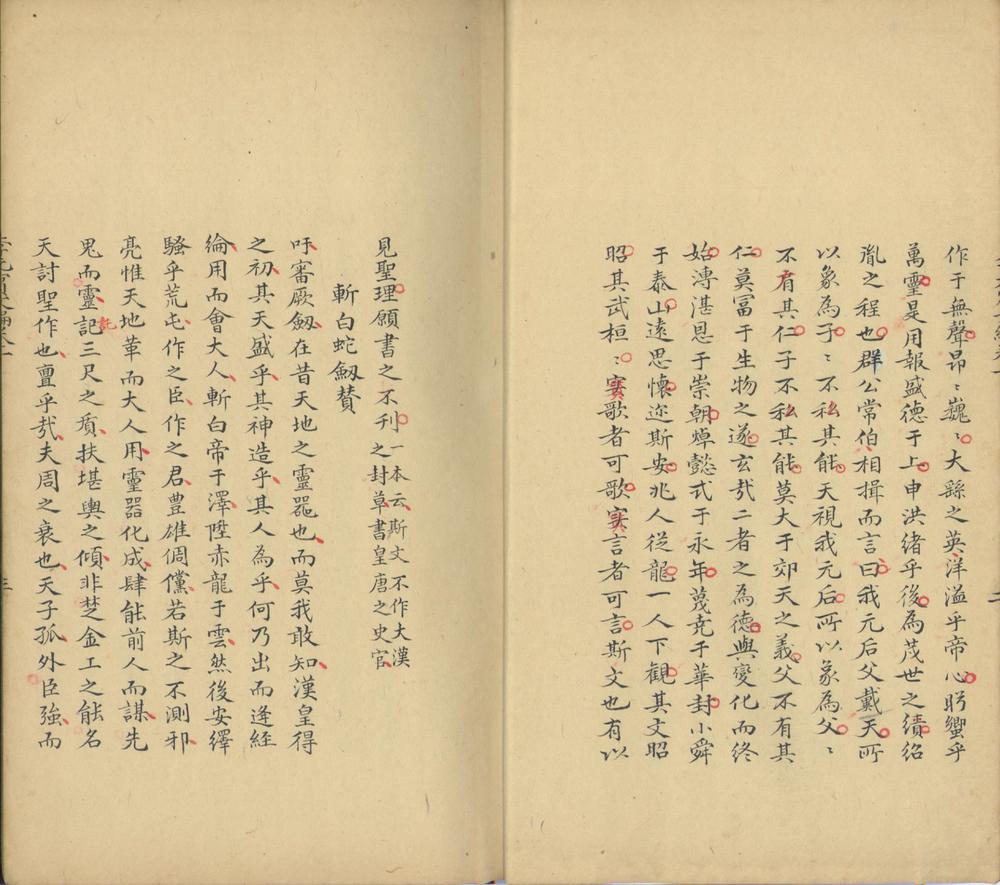 作于無聲昂〻巍〻大繇之英洋溢乎帝心肹蠁乎
萬靈是用報盛德于上申洪緒乎後為茂世之績紹
胤之程也群公常伯相揖而言曰我元后父戴天所
以象為子〻不私其能天視我元后所以象為父〻
不有其仁子不私其能莫大于郊天之義父不有其
仁莫冨于生物之遂玄㢤二者之為德與變化而終
始漙湛恩于崇朝焯懿式于永年蔑尭于華封小舜
于泰山遠思懷迩斯安兆人従龍一人下觀其文昭
昭其武桓〻實歌者可歌實言者可言斯文也有以
見聖理願書之不刋一本云斯文不作大漢之封草書皇唐之史官
斬白蛇劒賛
吁審厥劒在昔天地之靈噐也而莫我敢知漢皇得
之初其天盛乎其神造乎其人為乎何乃出而逢経
綸用而會大人斬白帝于澤陞赤龍于雲然後安繹
騷乎荒屯作之臣作之君豊雄倜儻若斯之不測邪
亮惟天地革而大人用靈器化成肆能前人而謀先
鬼而靈記三尺之質扶堪輿之傾非楚金工之能名
託
天討聖作也亶乎㢤夫周之衰也天子孤外臣強而